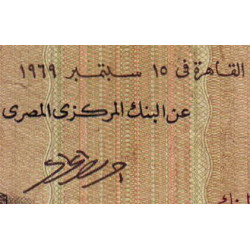 القاهرة فى ١٥ سبتمبر ١٩٦٩
عن البنك المركزى المصرى